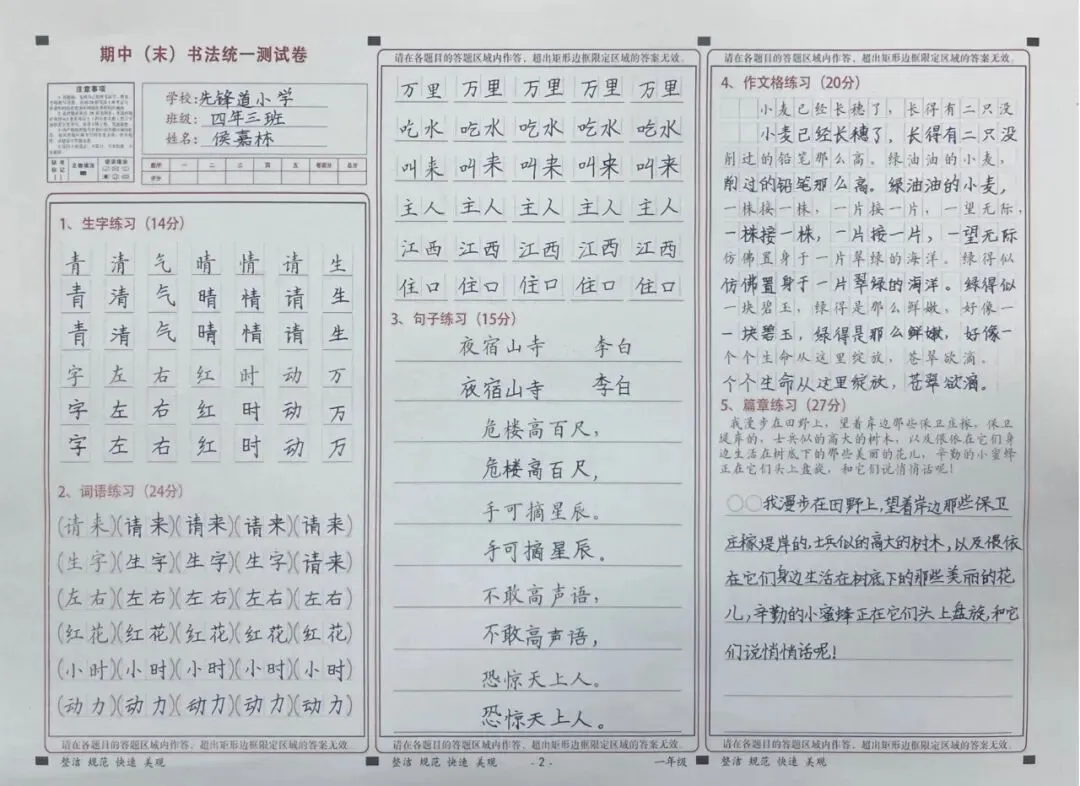 期中（末）书法统一测试卷
注意事项
学校:先锋道小学
班级: 四年三班
姓名: 侯嘉栋
题号 一 二 三 四 五 卷面分 总分
得分
1、生字练习（14分）
青 清 气 晴 情 请 生
青 清 气 晴 情 请 生
青 清 气 晴 情 请 生
字 左 右 红 时 动 万
字 左 右 红 时 动 万
字 左 右 红 时 动 万
2、词语练习（24分）
(请来)(请来)(请来)(请来)(请来)
(生字)(生字)(生字)(生字)(请来)
(左右)(左右)(左右)(左右)(左右)
(红花)(红花)(红花)(红花)(红花)
(小时)(小时)(小时)(小时)(小时)
(动力)(动力)(动力)(动力)(动力)
请在各题目的答题区域内作答，超出矩形边框限定区域的答案无效。
整洁 规范 快速 美观
请在各题目的答题区域内作答，超出矩形边框限定区域的答案无效。
万里 万里 万里 万里 万里
吃水 吃水 吃水 吃水 吃水
叫来 叫来 叫来 叫来 叫来
主人 主人 主人 主人 主人
江西 江西 江西 江西 江西
住口 住口 住口 住口 住口
3、句子练习（15分）
夜宿山寺 李白
夜宿山寺 李白
危楼高百尺，
危楼高百尺，
手可摘星辰。
手可摘星辰。
不敢高声语，
不敢高声语，
恐惊天上人。
恐惊天上人。
请在各题目的答题区域内作答，超出矩形边框限定区域的答案无效。
整洁 规范 快速 美观 - 2 - 一年级
请在各题目的答题区域内作答，超出矩形边框限定区域的答案无效。
4、作文格练习（20分）
小麦已经长穗了，长得有二只没
小麦已经长穗了，长得有二只没
削过的铅笔那么高。绿油油的小麦，
削过的铅笔那么高。绿油油的小麦，
一株接一株，一片接一片，一望无际，
一株接一株，一片接一片，一望无际
仿佛置身于一片翠绿的海洋。绿得似
仿佛置身于一片翠绿的海洋。绿得似
一块碧玉，绿得是那么鲜嫩，好像一
一块碧玉，绿得是那么鲜嫩，好像一
个个生命从这里绽放，苍翠欲滴。
个个生命从这里绽放，苍翠欲滴。
5、篇章练习（27分）
我漫步在田野上，望着岸边那些保卫庄稼，保卫
堤岸的，士兵似的高大的树木，以及偎依在它们身
边生活在树底下的那些美丽的花儿，辛勤的小蜜蜂
正在它们头上盘旋，和它们说悄悄话呢！
○○我漫步在田野上，望着岸边那些保卫
庄稼堤岸的，士兵似的高大的树木，以及偎依
在它们身边生活在树底下的那些美丽的花
儿，辛勤的小蜜蜂正在它们头上盘旋，和它
们说悄悄话呢！
请在各题目的答题区域内作答，超出矩形边框限定区域的答案无效。
整洁 规范 快速 美观